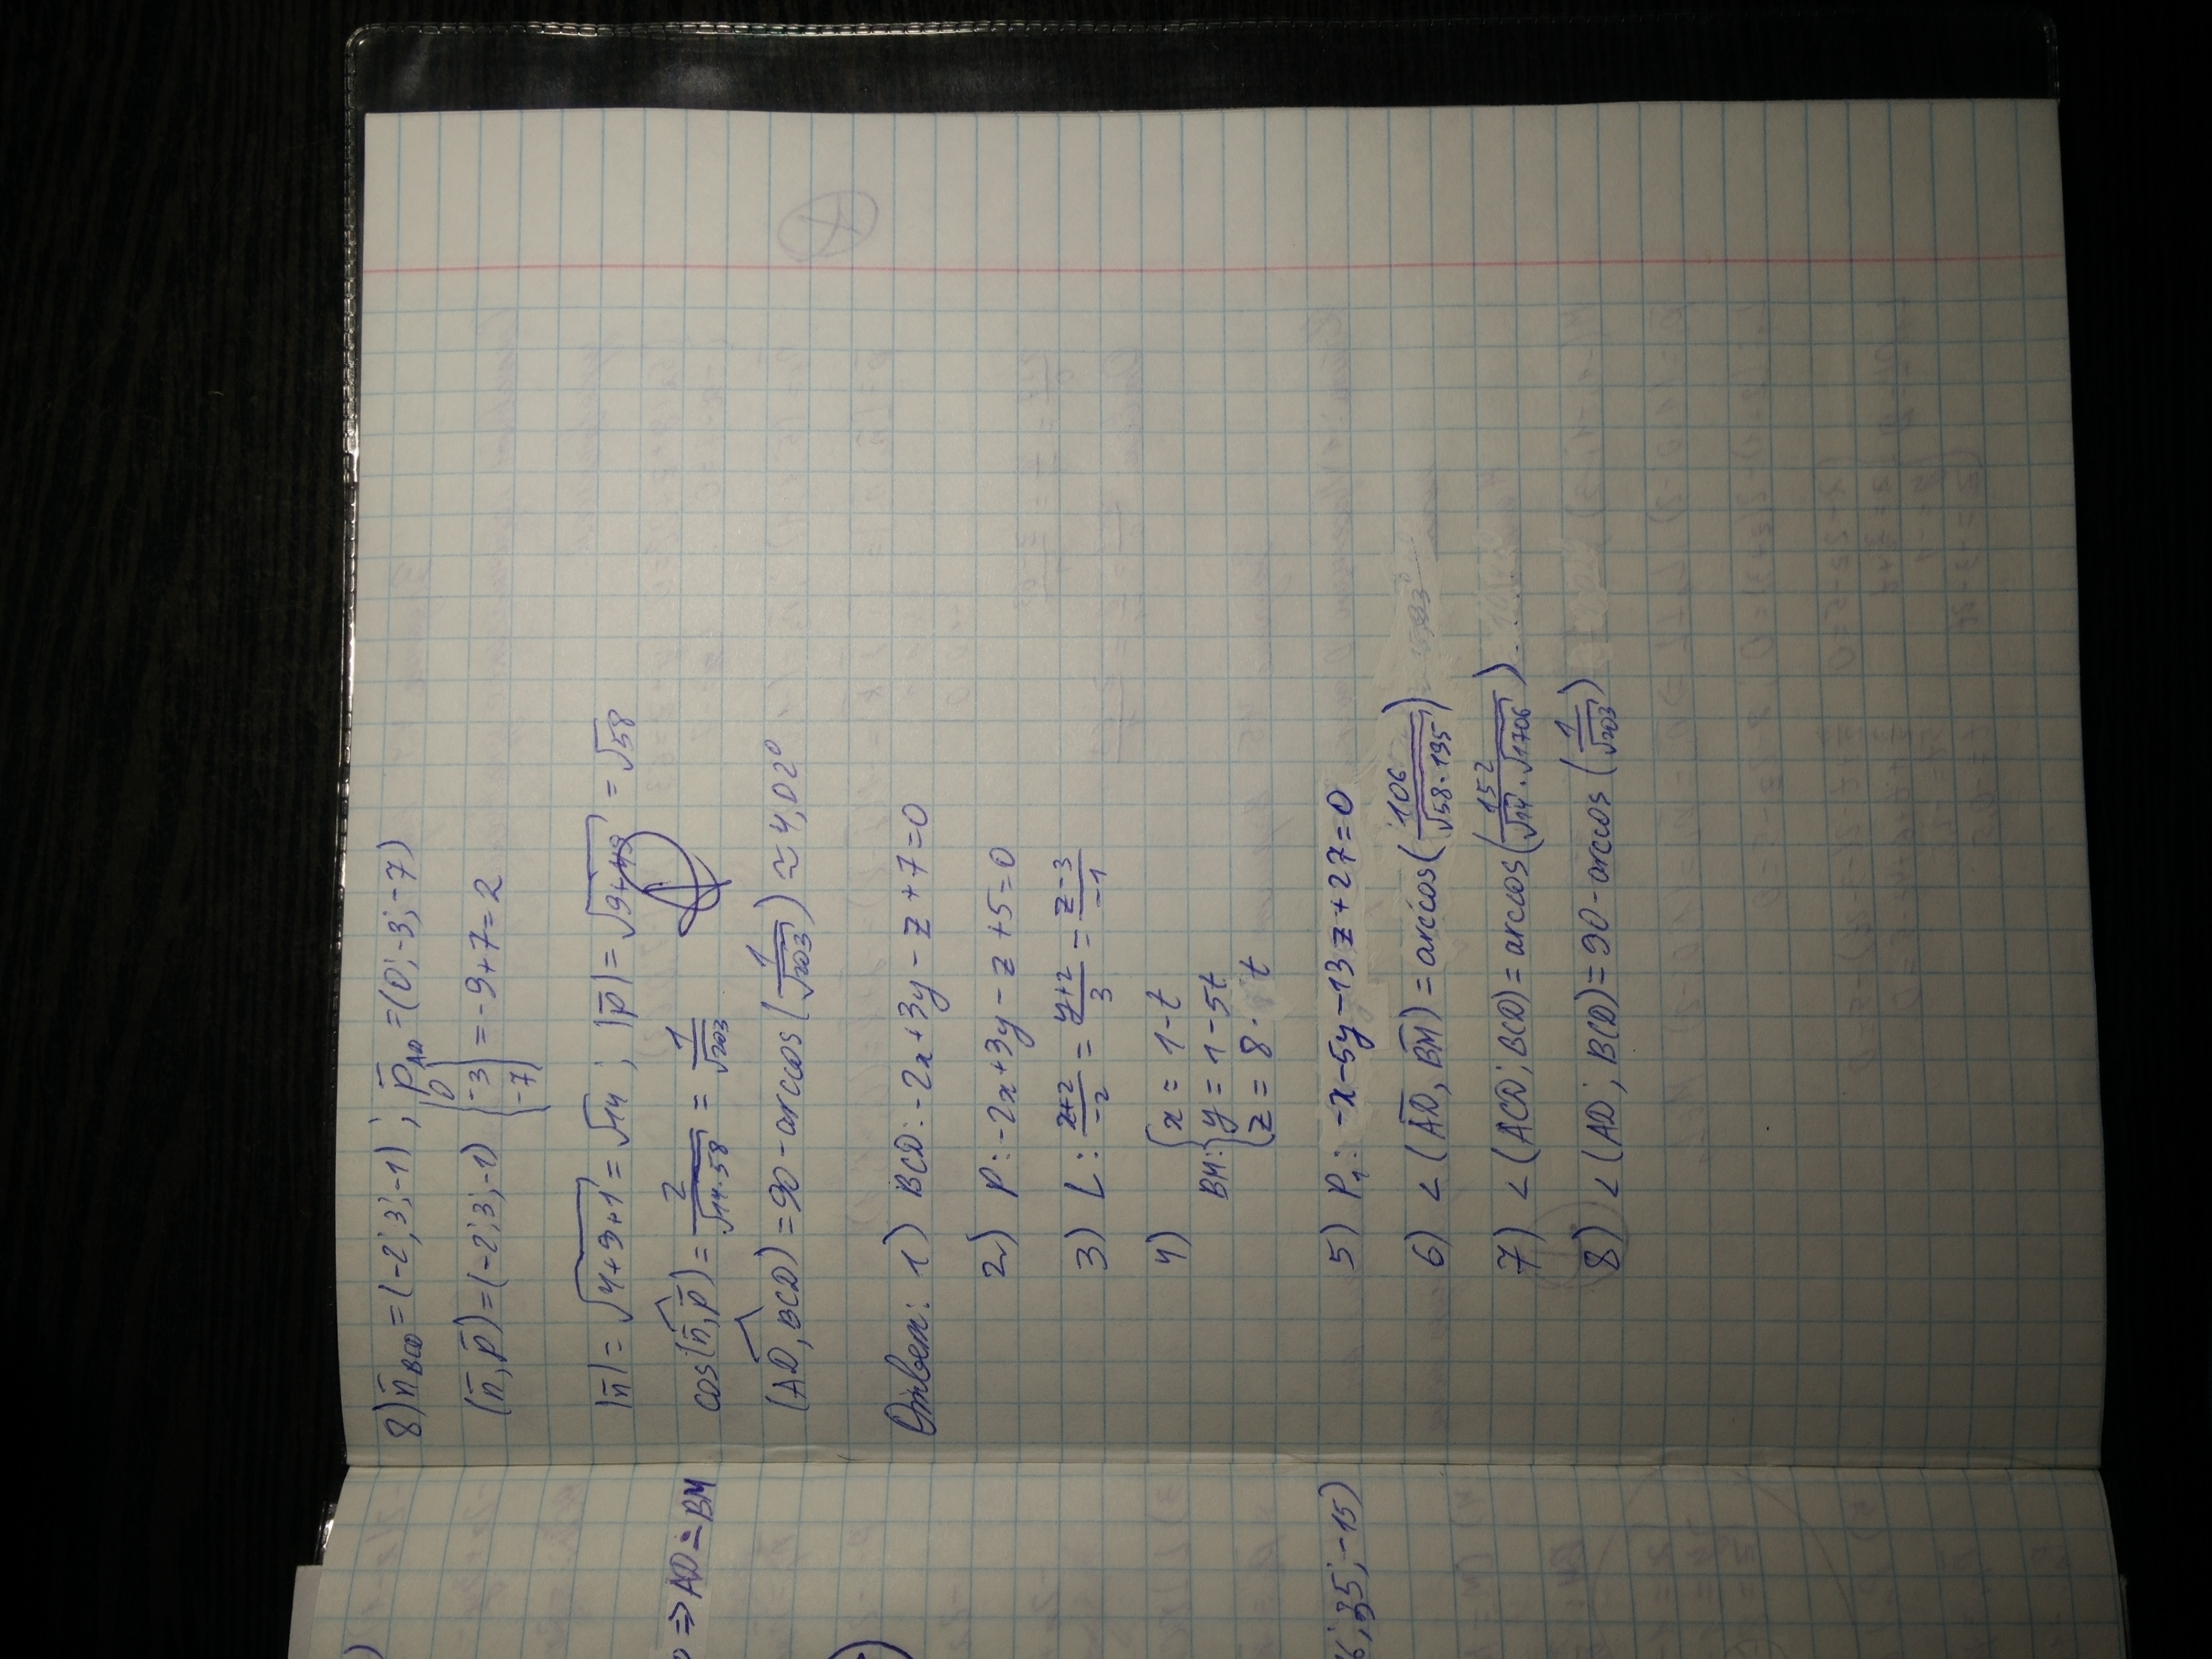 8) n̄_BCD = (-2; 3; -1); p̄_AD = (0; -3; -7)
(n̄, p̄) = (-2; 3; -1) (0 -3 -7) = -9+7 = 2
|n̄| = √(4+9+1) = √14; |p̄| = √(9+49) = √58
cos(n̄, p̄) = 2/√(14·58) = 1/√203
(AD, BCD) = 90 - arccos(1/√203) ≈ 4,02°
Ответ: 1) BCD: -2x+3y-z+7=0
2) P: -2x+3y-z+5=0
3) L: x+2/-2 = y+2/3 = z-3/-1
4) BM: { x = 1-t
y = 1-5t
z = 8· t
5) P₁: -x-5y-13z+27=0
6) ∠(AD, BM) = arccos(106/√58·195)
7) ∠(ACD; BCD) = arccos(152/√14·√1706)
8) ∠(AD; BCD) = 90 - arccos(1/√203)
⇒ AD ∸ BM
6; 35; -15)